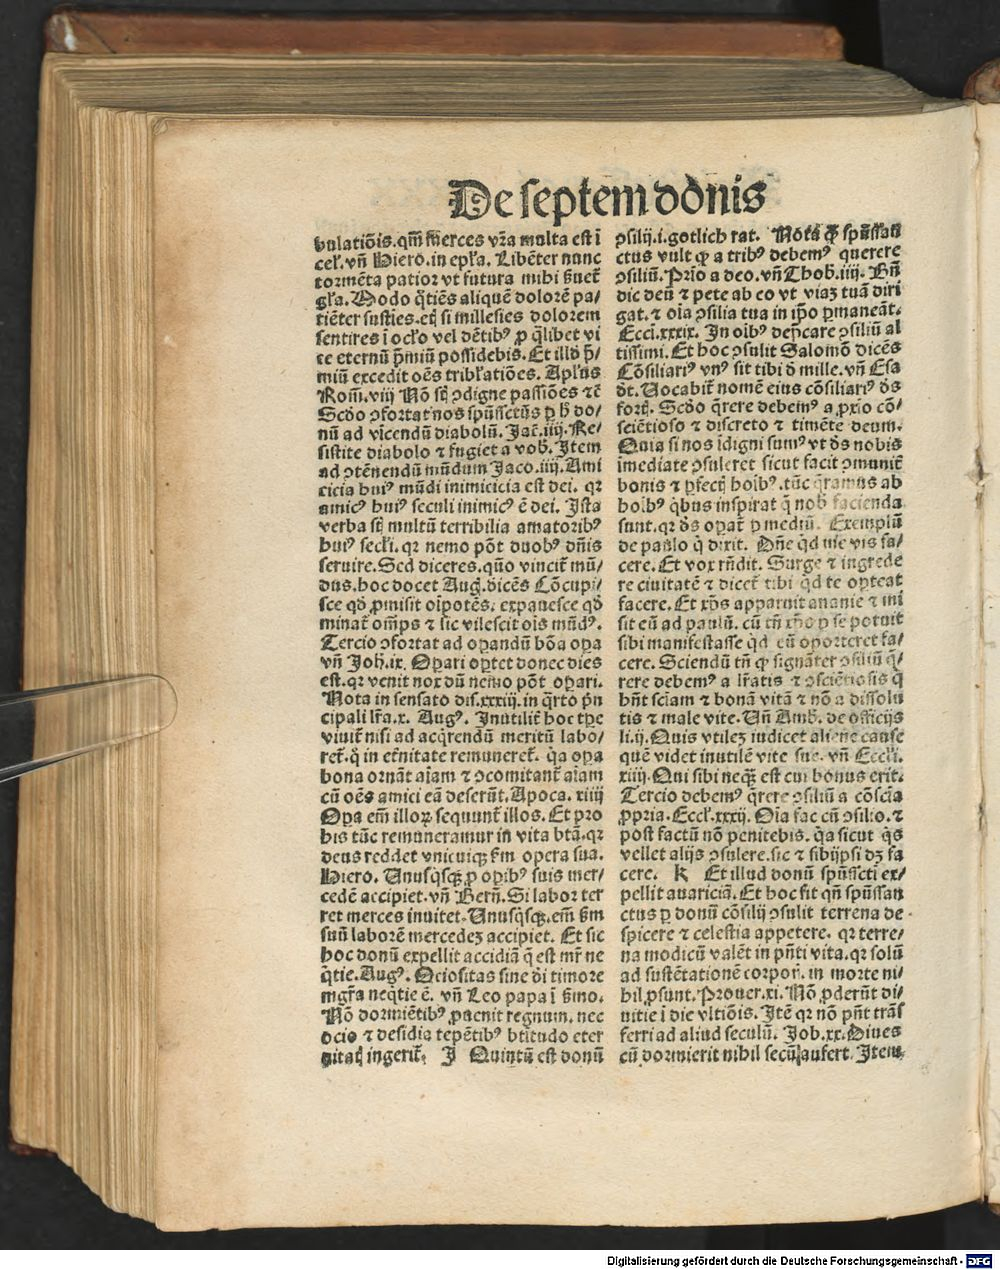 De septem donis
bulatiõis. qm̃ merces vr̃a multa est ĩ
cel'. vñ Hiero. in epl'a. Libẽter nunc
tormẽta patior vt futura mihi ßuet̃
gl'a. Modo q̃tiẽs aliquẽ dolorẽ pa⸗
tiẽter susties. etß si millesies dolorem
sentires ĩ oclo vel dẽtibꝰ ꝓ q̃libet vi
ce eternũ p̃miũ possidebis. Et illð p̃⸗
miũ excedit oẽs tribl'atiões. Apl'us
Rom̃. viij Nõ sũt ꝯdigne passiões ⁊c̃
Scðo ꝯfortat nos spũssctũs ꝑ ħ do⸗
nũ ad vĩcendũ diabolũ. Jac̃. iiij. Re⸗
sistite diabolo ⁊ fugiet a vob̃. Item
ad ꝯtẽnendũ mũdum Jaco. iiij. Ami
cicia huiꝰ mũdi inimicicia est dei. qꝛ
amicꝰ huiꝰ seculi inimicꝰ ẽ dei. Ista
verba sũt multũ terribilia amatoribꝰ
huiꝰ secl'i. qꝛ nemo põt duobꝰ dñis
seruire. Sed diceres. quõ vincit̃ mũ⸗
dus. hoc docet Aug̃. dicẽs Cõcupi⸗
sce qð ꝓmisit oĩpotẽs. expauesce qð
minat̃ om̃ps ⁊ sic vilescit oĩs mũdꝰ.
Tercio ꝯfortat ad oꝑandũ bõa oꝑa
vñ Joh̃. ix. Oꝑari oꝑtet donec dies
est. qꝛ venit nox dũ nemo põt oꝑari.
Nota in sensato dis. xxxiij. in q̃rto p̃n
cipali lr̃a. x. Augꝰ. Inutilit̃ hoc tꝑe
viuit̃ nisi ad acq̃rendũ meritũ labo⸗
ret̃. q̊ in et̃nitate remuneret̃. q̃a oꝑa
bona ornãt aĩam ⁊ ꝯcomitant̃ aĩam
cũ oẽs amici eã deserũt. Apoca. xiiij
Oꝑa em̃ illoꝝ sequunt̃ illos. Et pro
bis tũc remuneramur in vita btã. qꝛ
deus reddet vnicuiqꝫ ẜm opera sua.
Hiero. Unusq̃sqꝫ ꝓ oꝑibꝰ suis mer⸗
cedẽ accipiet. vñ Berñ. Si labor ter
ret merces inuitet. Unusq̃sqꝫ. em̃ ẜm
suũ laborẽ mercedeꝫ accipiet. Et sic
hoc donũ expellit accidiã q̃ est mr̃ ne
q̃tie. Augꝰ. Ociositas sine dĩ timore
mgr̃a neq̃tie ẽ. vñ Leo papa ĩ ẜmo.
Nõ dormiẽtibꝰ ꝓuenit regnum. nec
ocio ⁊ desidia tepẽtibꝰ btitudo eter
nitatꝭ ingerit̃. J Quintũ est donũ
ꝯsilij. i. gotlich rat. Nota ꝙ spũssan
ctus vult ꝙ a tribꝰ debemꝰ querere
ꝯsiliũ. Prĩo a deo. vñ Thob. iiij. Bñ
dic deũ ⁊ pete ab eo vt viaꝫ tuã diri
gat. ⁊ oĩa ꝯsilia tua in ip̃o ꝑmaneãt.
Eccl̃. xxxix. In oĩbꝰ dep̃care ꝯsiliũ al
tissimi. Et hoc ꝯsulit Salomõ dicẽs
Cõsiliariꝰ vnꝰ sit tibi ð mille. vñ Esa
ðt. Uocabit̃ nomẽ eius cõsiliariꝰ ðs
fortꝭ. Scðo q̃rere debemꝰ a ꝓxĩo cõ⸗
sciẽtioso ⁊ discreto ⁊ timẽte deum.
Quia si nos ĩdigni sumꝰ vt ðs nobis
imediate ꝯsuleret sicut facit ꝯmunit̃
bonis ⁊ ꝑfectꝭ hoĩbꝰ. tũc q̃ramus ab
hoĩbꝰ q̃bus inspirat q̃ nob̃ facienda
sunt. qꝛ ðs oꝑat̃ ꝑ mediũ. Exemplũ
de paulo q̃ dixit. Dñe q̃d me vis fa⸗
cere. Et vox rñdit. Surge ⁊ ingrede
re ciuitatẽ ⁊ dicet̃ tibi q̃d te oꝑteat
facere. Et xp̃s apparuit ananie ⁊ mi
sit eũ ad paulũ. cũ tñ xp̃o ꝑ se potuit
sibi manifestasse q̃d eũ oporteret fa⸗
cere. Sciendũ tñ ꝙ signãter ꝯsiliũ q̃⸗
rere debemꝰ a lr̃atis ⁊ ꝯsciẽtiosis q̃
hñt sciam ⁊ bonã vitã ⁊ nõ a dissolu
tis ⁊ male vite. Uñ Amb̃. de officijs
li. ij. Quis vtileꝫ iudicet aliene cause
quẽ videt inutilẽ vite sue. vñ Eccl'i.
xiiij. Qui sibi neqꝫ est cui bonus erit.
Tercio debemꝰ q̃rere ꝯsiliũ a cõscĩa
ꝓpria. Eccl'. xxxij. Oĩa fac cũ ꝯsilio. ⁊
post factũ nõ penitebis. q̃a sicut q̃s
vellet alijs ꝯsulere. sic ⁊ sibijpsi dꝫ fa
cere. K Et illud donũ spũsscti ex⸗
pellit auariciã. Et hoc fit qñ spũssan
ctus ꝑ donũ cõsilij ꝯsulit terrena de⸗
spicere ⁊ celestia appetere. qꝛ terre⸗
na modicũ valẽt in p̃nti vita. qꝛ solũ
ad sustẽtationẽ corporꝭ. in morte ni⸗
hil ꝓsunt. Prouer. xi. Nõ ꝓderũt di⸗
uitie ĩ die vltiõis. Itẽ qꝛ nõ pñt trãs
ferri ad aliud seculũ. Job. xx. Diues
cũ dormierit nihil secũ aufert. Item
Digitalisierung gefördert durch die Deutsche Forschungsgemeinschaft - DFG